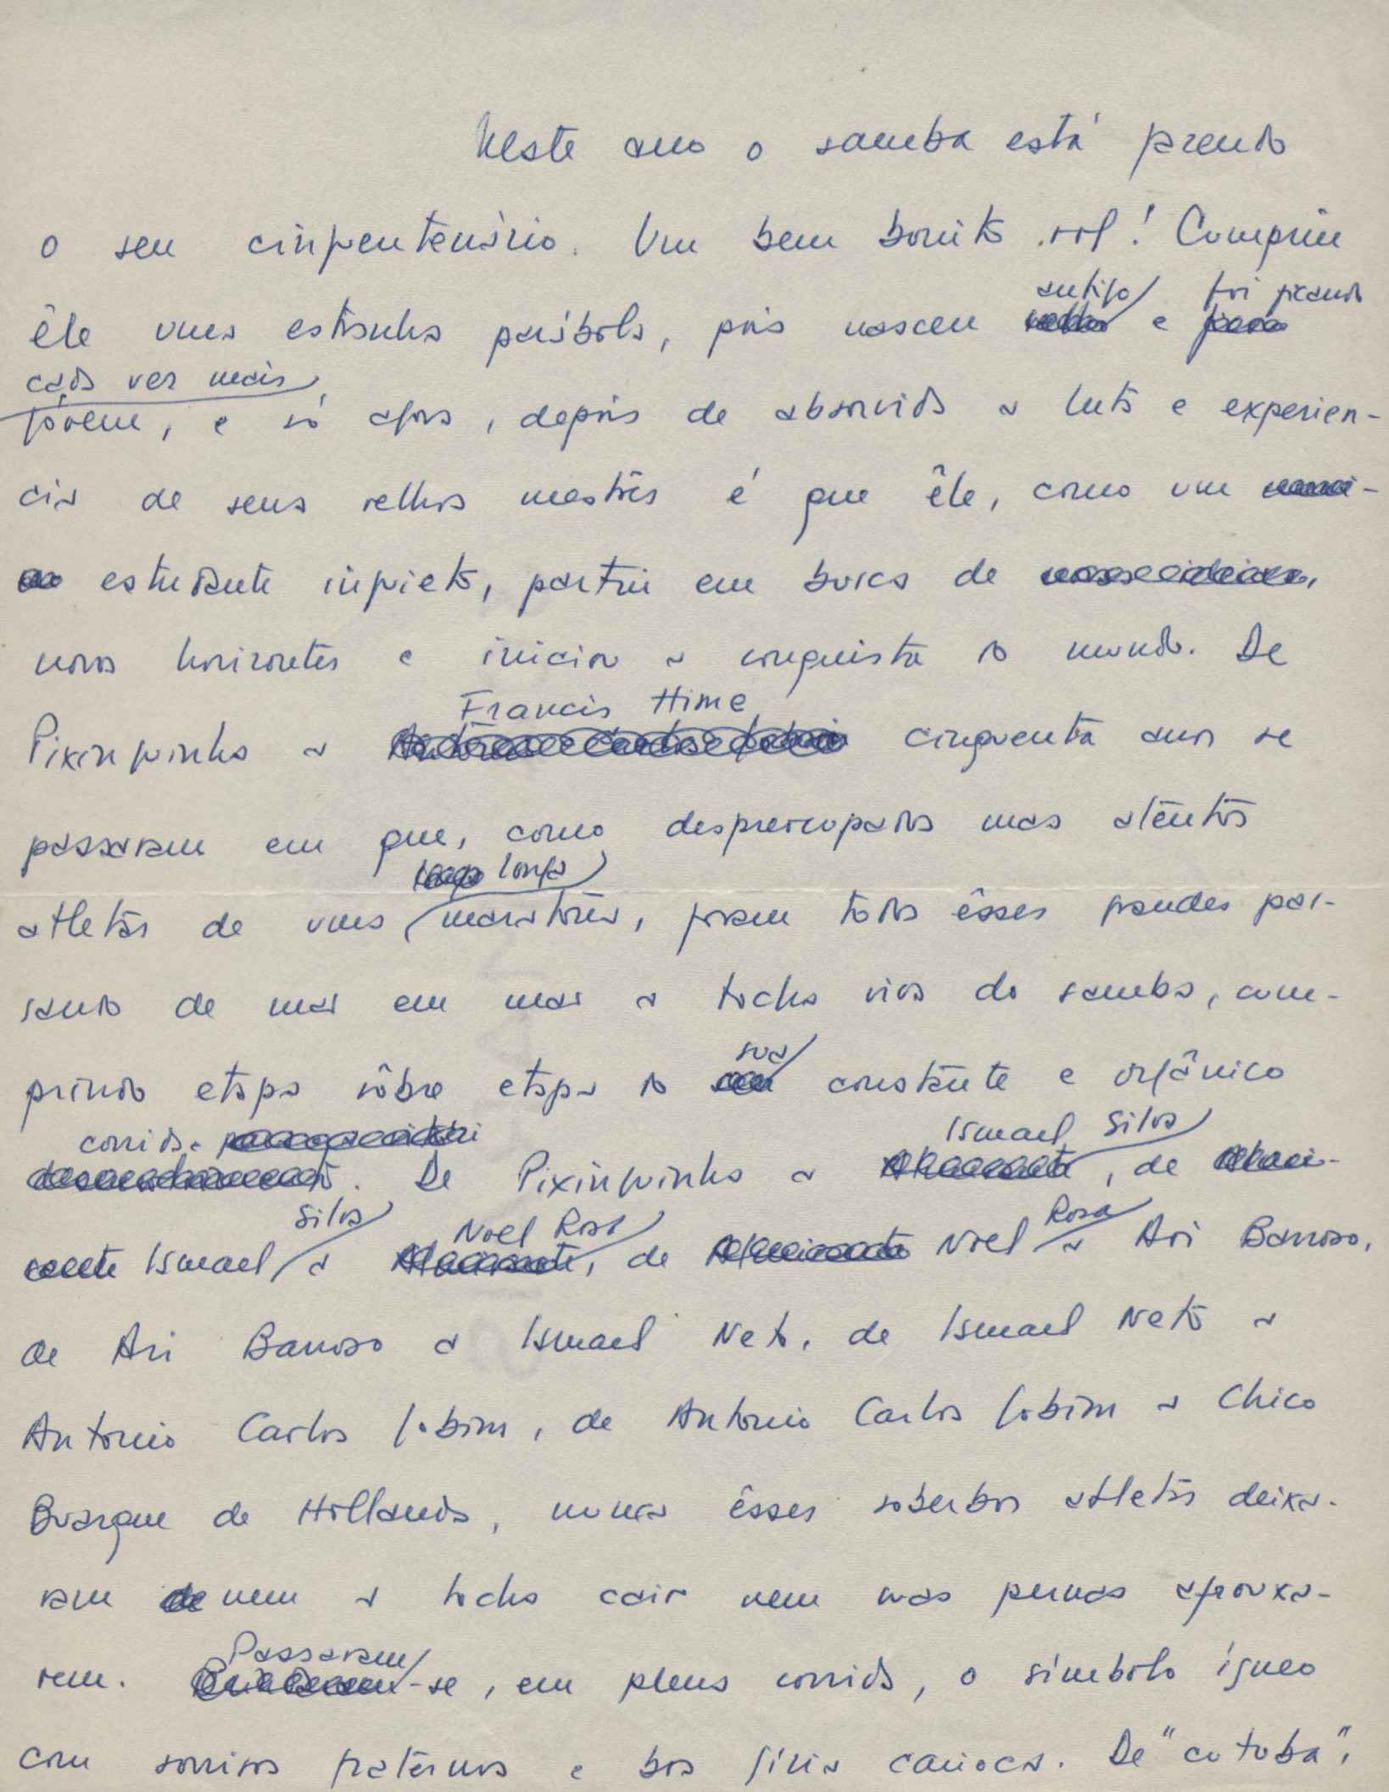 Neste ano o samba está fazendo
o seu cinquentenário. Um bem bonito rol! Cumpriu
antigo foi ficando
êle uma estranha parábola, pois nasceu velho e ficou
cada vez mais
jóvem, e só agora, depois de absorvida a luta e experien-
cia de seus velhos mestres é que êle, como um
estudante inquieto, partiu em busca de novas ideias,
novos horizontes e iniciou a conquista do mundo. De
Francis Hime
Pixinguinha a cinquenta anos se
passaram em que, como despreocupados mas atentos
longa
atletas de uma maratona, foram todos êsses grandes pas-
sando de mão em mão a tocha viva do samba, cum-
sua
prindo etapa sôbre etapa da constante e orgânico
corrida. Ismael Silva
De Pixinguinha a , de
Silva Noel Rosa Rosa
Ismael a , de Noel a Ari Barroso,
de Ari Barroso a Ismael Neto, de Ismael Neto a
Antonio Carlos Jobim, de Antonio Carlos Jobim a Chico
Buarque de Hollanda, nunca êsses soberbos atletas deixa-
ram nem a tocha cair nem suas pernas afrouxa-
Passaram
rem. -se, em plena corrida, o símbolo ígneo
com sorrisos fraternos e boa gíria carioca. De "cutuba",